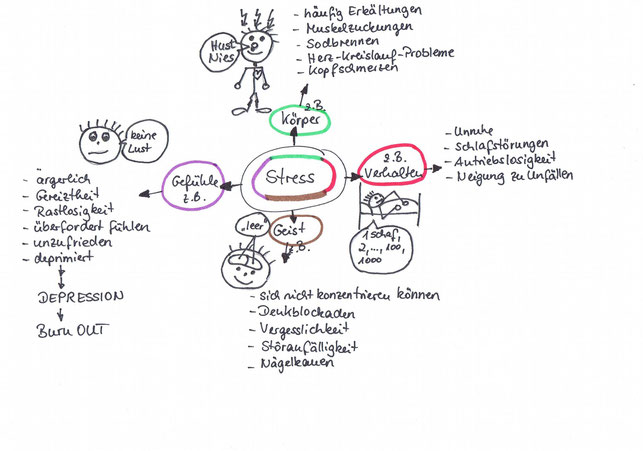 - häufig Erkältungen
- Muskelzuckungen
- Sodbrennen
- Herz-Kreislauf-Probleme
- Kopfschmerzen
Hust
Nies
z.B.
Körper
keine
Lust
- Unruhe
- Schlafstörungen
- Antriebslosigkeit
- Neigung zu Unfällen
z.B.
Verhalten
Stress
Gefühle
z.B.
- ärgerlich
- Gereiztheit
- Rastlosigkeit
- überfordert fühlen
- unzufrieden
- deprimiert
DEPRESSION
Burn OUT
"leer"
Geist
z.B.
1 Schaf,
2, ..., 100,
1000
- sich nicht konzentrieren können
- Denkblockaden
- Vergesslichkeit
- Störanfälligkeit
- Nägelkauen